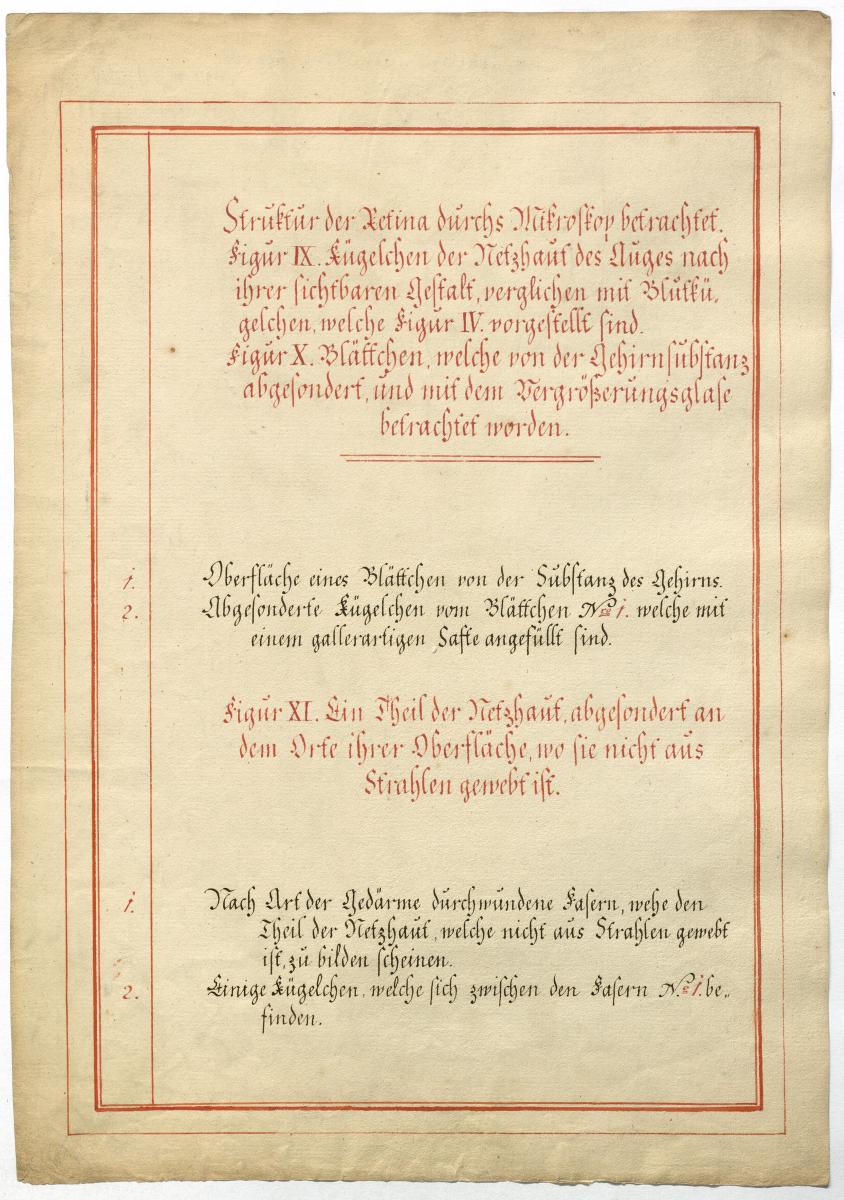 Struktur der Retina durchs Mikroskop betrachtet.
Figur IX. Kügelchen der Netzhaut des Auges nach
ihrer sichtbaren Gestalt, verglichen mit Blutkü-
gelchen, welche Figur IV. vorgestellt sind.
Figur X. Blättchen, welche von der Gehirnsubstanz
abgesondert, und mit dem Vergrößerungsglase
betrachtet worden.
1. Oberfläche eines Blättchen von der Substanz des Gehirns.
2. Abgesonderte Kügelchen vom Blättchen No 1. welche mit
einem gallerartigen Safte angefüllt sind.
Figur XI. Ein Theil der Netzhaut, abgesondert an
dem Orte ihrer Oberfläche, wo sie nicht aus
Strahlen gewebt ist.
1. Nach Art der Gedärme durchwundene Fasern, wehe den
Theil der Netzhaut, welche nicht aus Strahlen gewebt
ist, zu bilden scheinen.
2. Einige Kügelchen, welche sich zwischen den Fasern No 1. be„
finden.